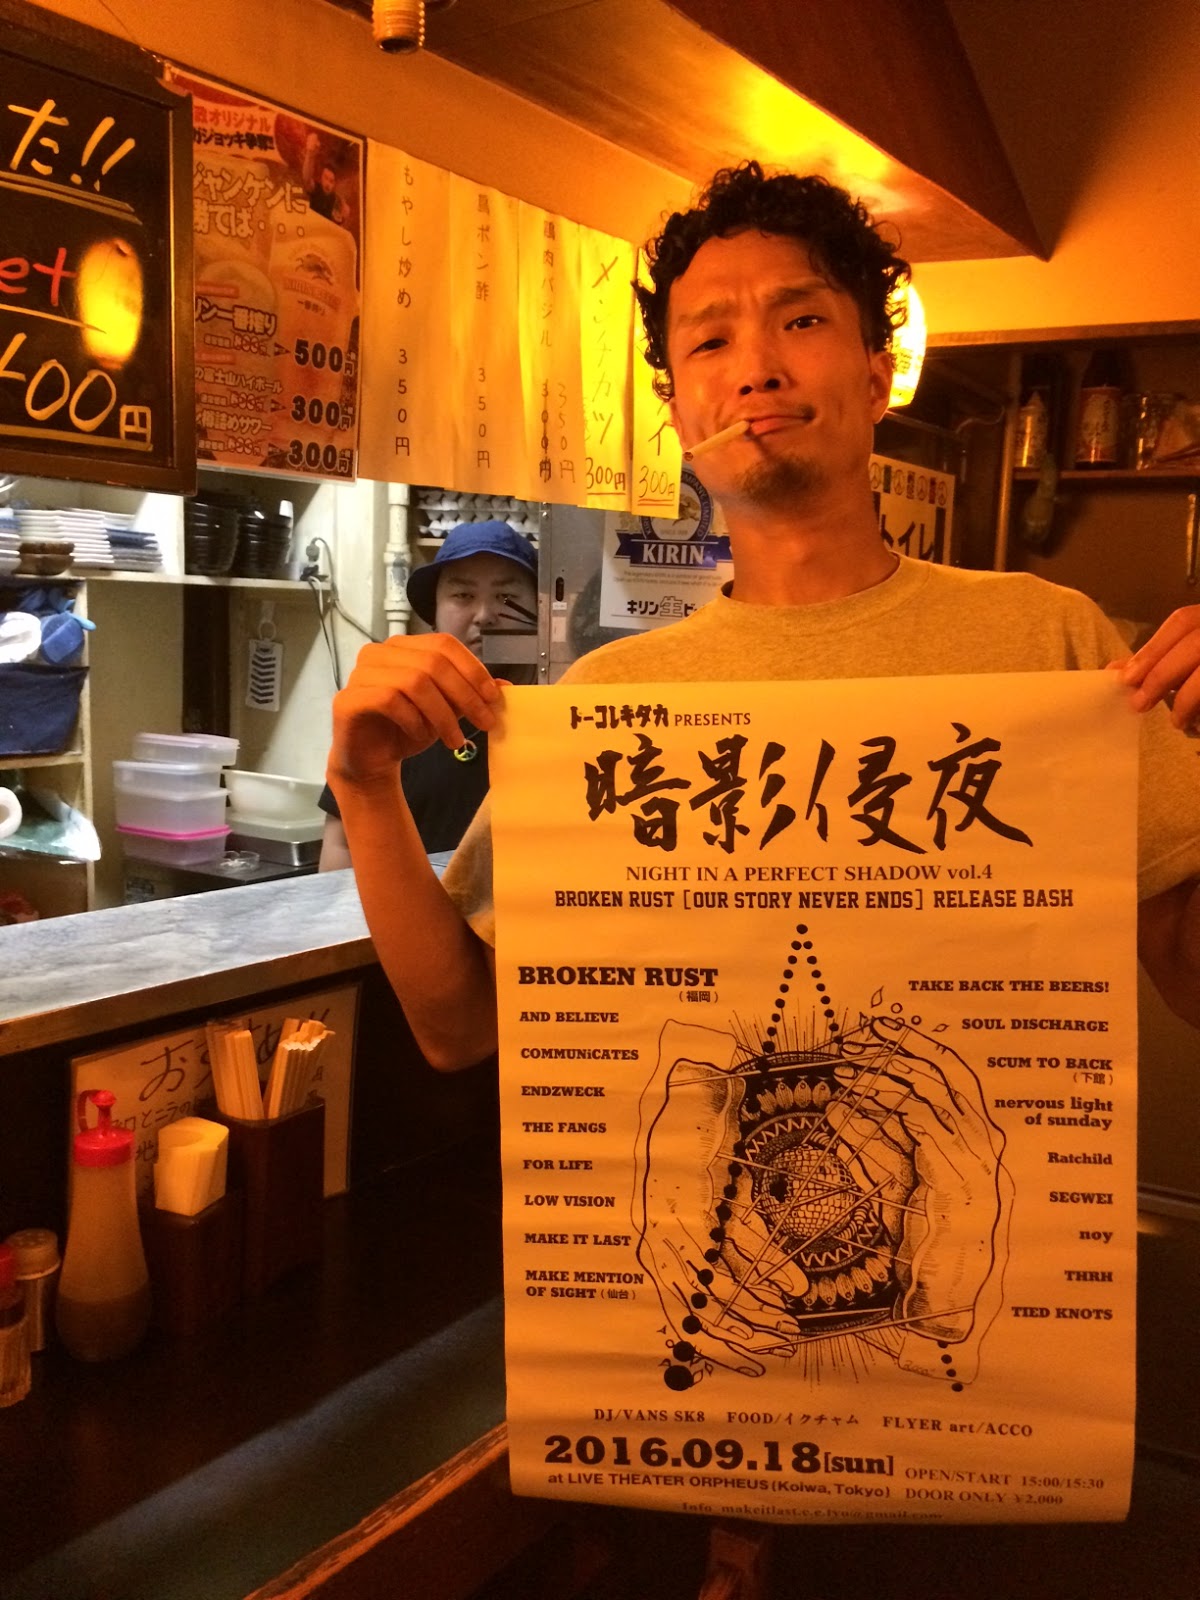 た!!
et
400円
オリジナル
ガジョッキ争奪!!
ジャンケンに
勝てば・・・
一番搾り
500円
富士山ハイボール
300円
詰めサワー
300円
もやし炒め 350円
鳥ポン酢 350円
鶏肉バジル
350円
メンチカツ 300円
イ 300円
KIRIN
キリン生ビ
トイレ
トーコレキタカ PRESENTS
暗影侵夜
NIGHT IN A PERFECT SHADOW vol.4
BROKEN RUST [OUR STORY NEVER ENDS] RELEASE BASH
BROKEN RUST
(福岡)
AND BELIEVE
COMMUNiCATES
ENDZWECK
THE FANGS
FOR LIFE
LOW VISION
MAKE IT LAST
MAKE MENTION
OF SIGHT (仙台)
TAKE BACK THE BEERS!
SOUL DISCHARGE
SCUM TO BACK
(下館)
nervous light
of sunday
Ratchild
SEGWEI
noy
THRH
TIED KNOTS
DJ/VANS SK8 FOOD/イクチャム FLYER art/ACCO
2016.09.18[sun]
at LIVE THEATER ORPHEUS(Koiwa,Tokyo)
OPEN/START 15:00/15:30
DOOR ONLY ¥2,000
Info makeitlast.e.c.tyo@gmail.com